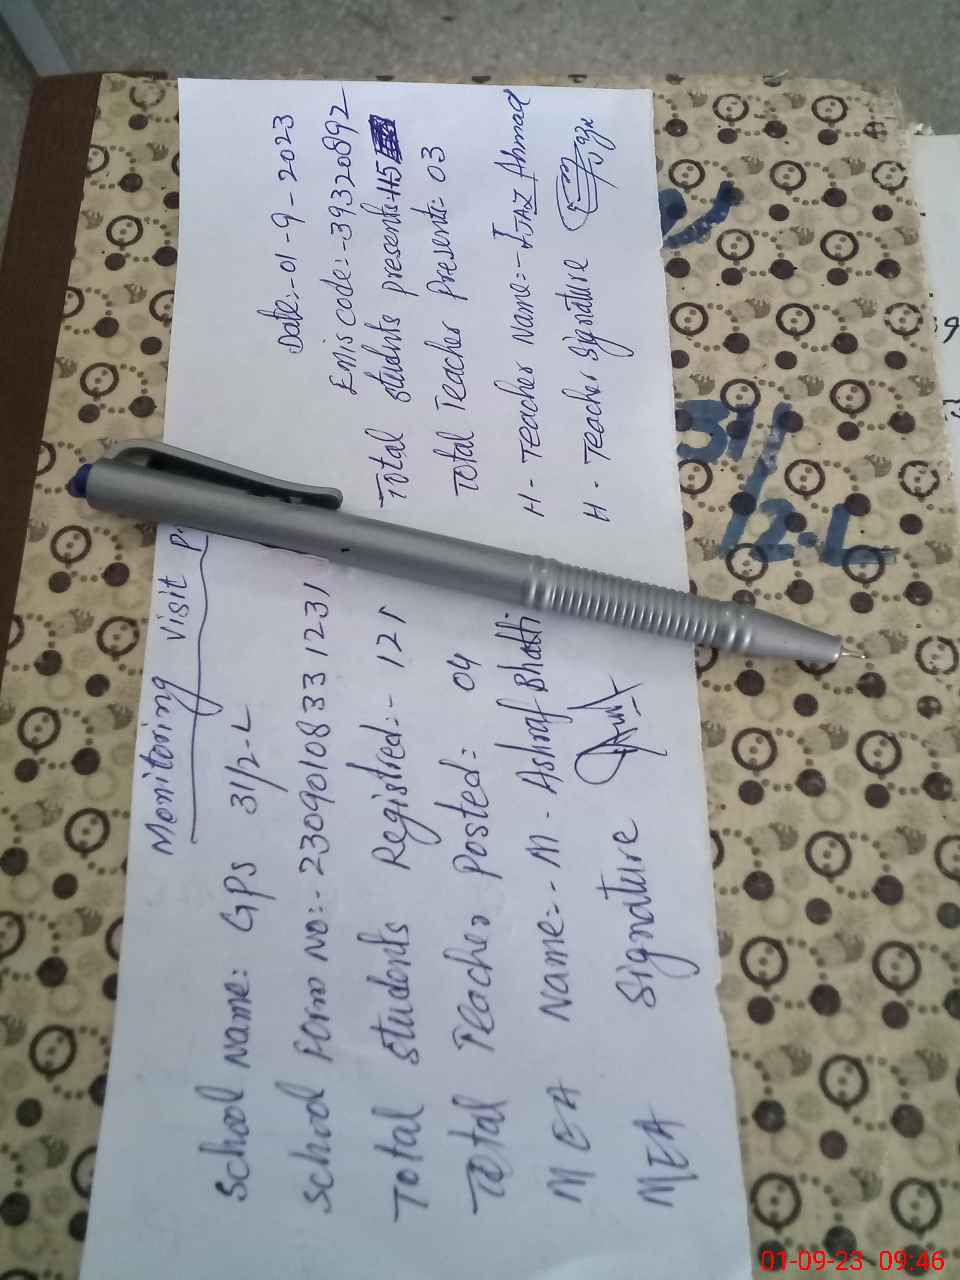 Monitoring visit
School Name: GPS 31/2-L Date:-01-9-2023
School Form No:-2309010833 1231 Emis code:-39320892
Total Students Registred:- 121 Total students presents:-115
Total Teacher Posted: 04 Total Teacher Presents:- 03
MEA Name:- M. Ashraf Bhatti H-Teacher Name:-IJAZ Ahmad
MEA Signature H-Teacher Signature
31/
12-L
01-09-23 09:46